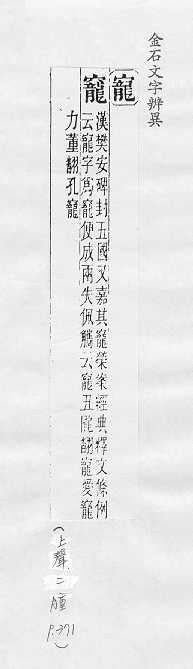 金石文字辨異
寵
竉
漢樊安碑封五國又嘉其竉榮案經典釋文條例
云寵字爲竉便成兩失佩觿云寵丑隴翻寵愛竉
力董翻孔竉
(上聲二腫 P.371)